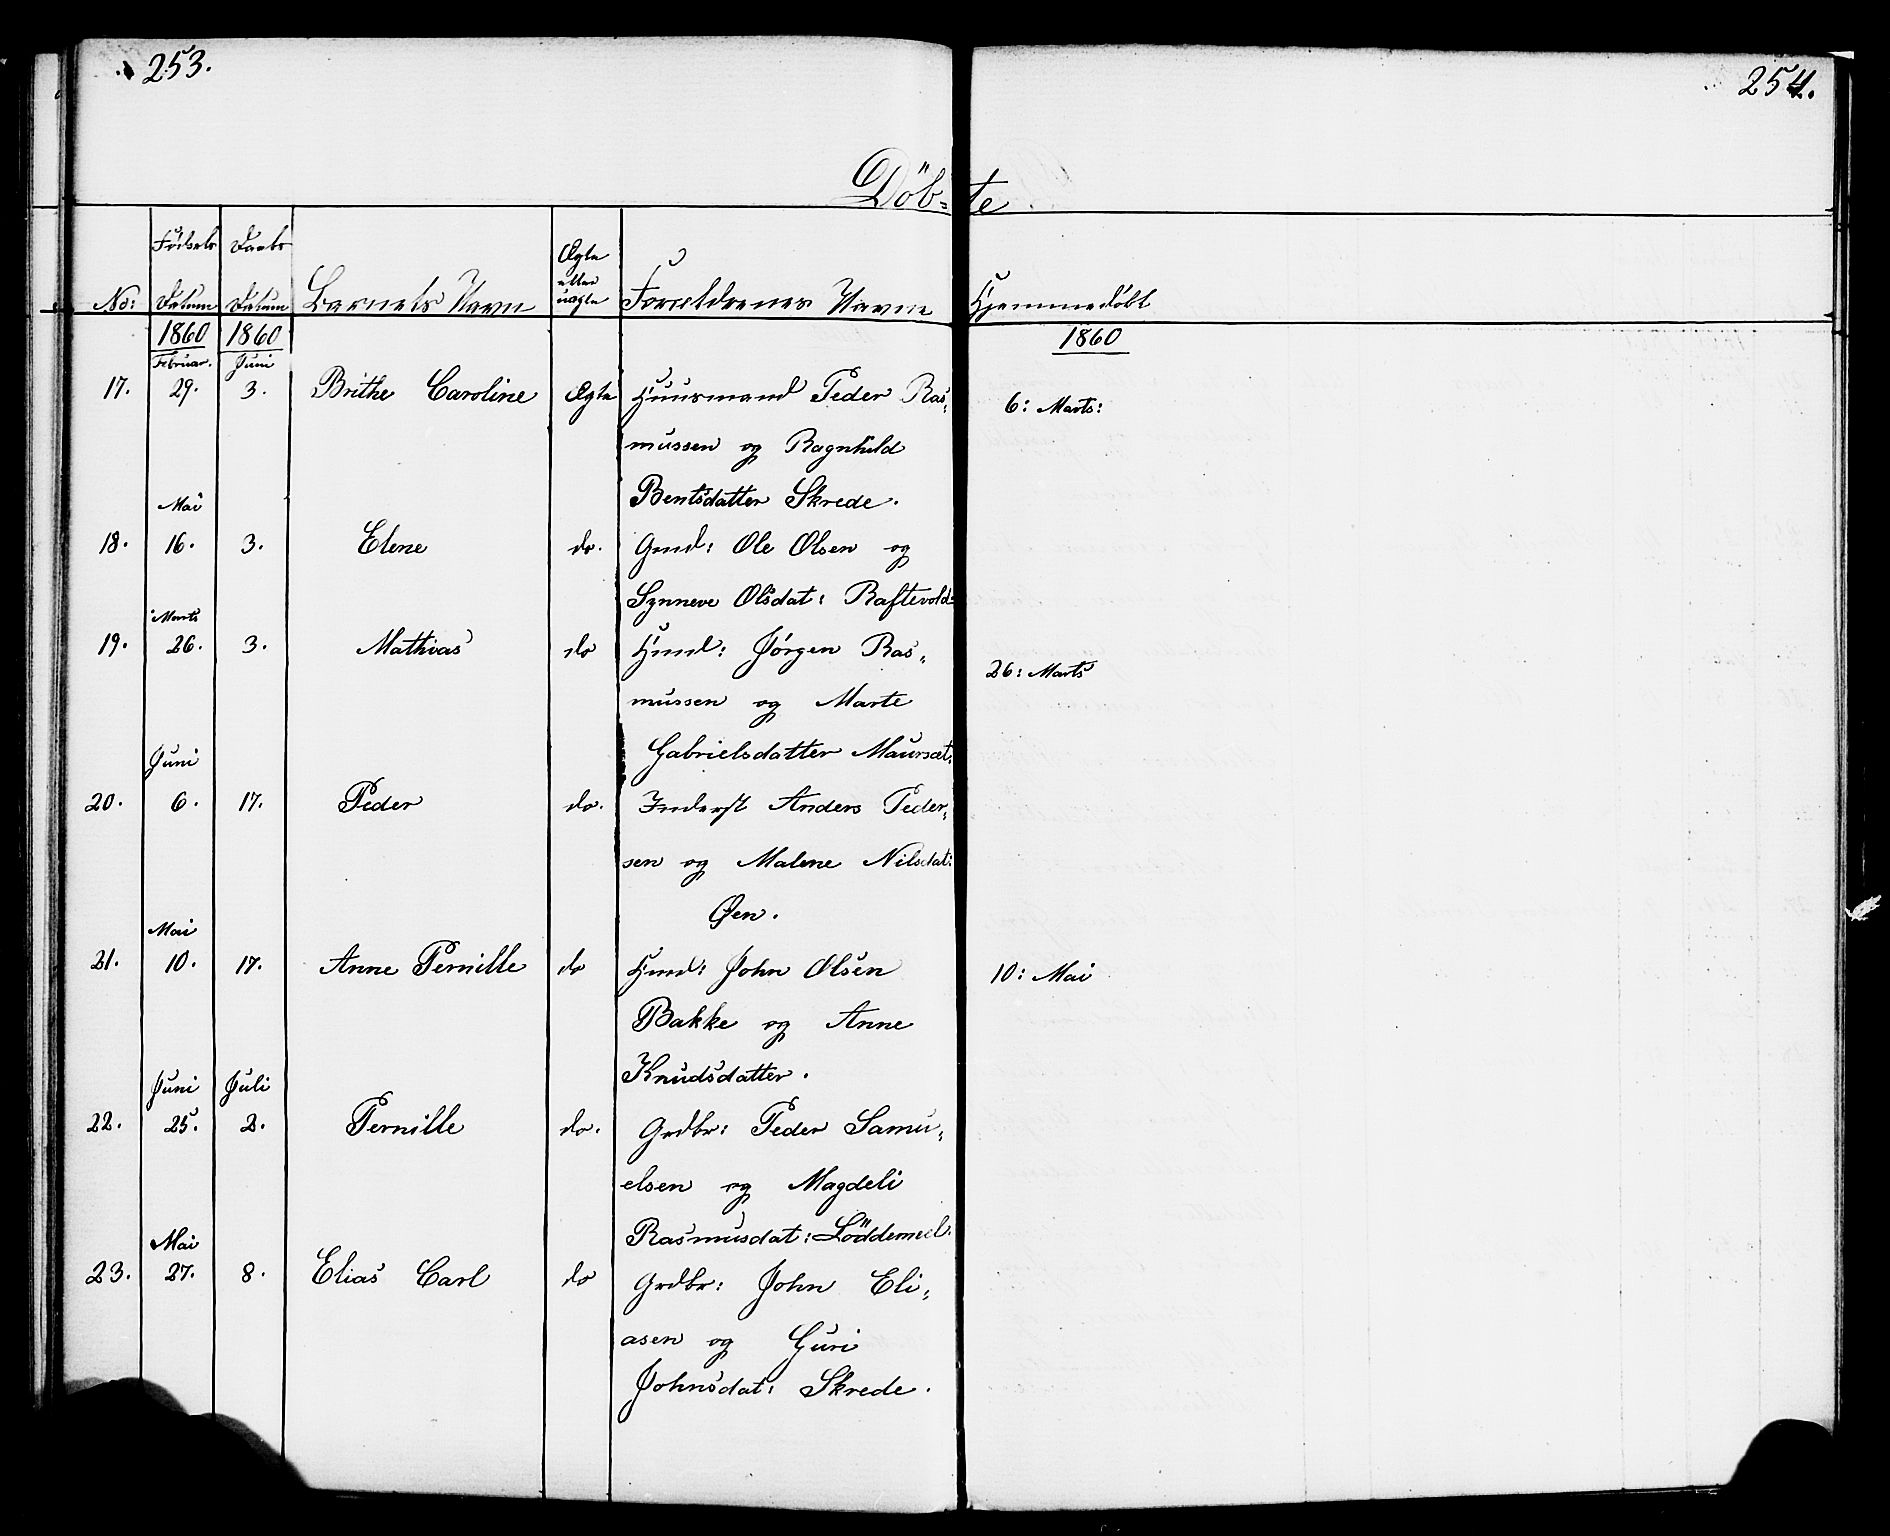 253. 254.
Døb-te
Fødsels Daabs Ægte
eller
No: Datum Datum Barnets Navn uægte Forældrenes Navne Hjemmedøbt
1860 1860 1860
Februar. Juni
17. 29. 3. Brithe Caroline Ægte Huusmand Peder Ras- 6: Marts:
mussen og Ragnhild
Bentsdatter Skrede.
Mai
18. 16. 3. Elene do. Gmd: Ole Olsen og
Synneve Olsdat: Raftevold
Marts
19. 26. 3. Mathias do Hmd: Jørgen Ras- 26: Marts
mussen og Marte
Gabrielsdatter Maursæt.
Juni
20. 6. 17. Peder do. Inderst Anders Peder-
sen og Malene Nilsdat:
Øen.
Mai
21. 10. 17. Anne Pernille do Hmd: John Olsen 10: Mai
Bakke og Anne
Knudsdatter.
Juni Juli
22. 25. 2. Pernille do. Grdbr: Peder Samu-
elsen og Magdeli
Rasmusdat: Løddemel.
Mai
23. 27. 8. Elias Carl do Grdbr: John Eli-
asen og Guri
Johnsdat: Skrede.